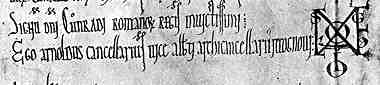 Signu dni Cunradi Romanor regis invictissimi:
Ego arnoldus cancellarius vice archicancellarii recognovi